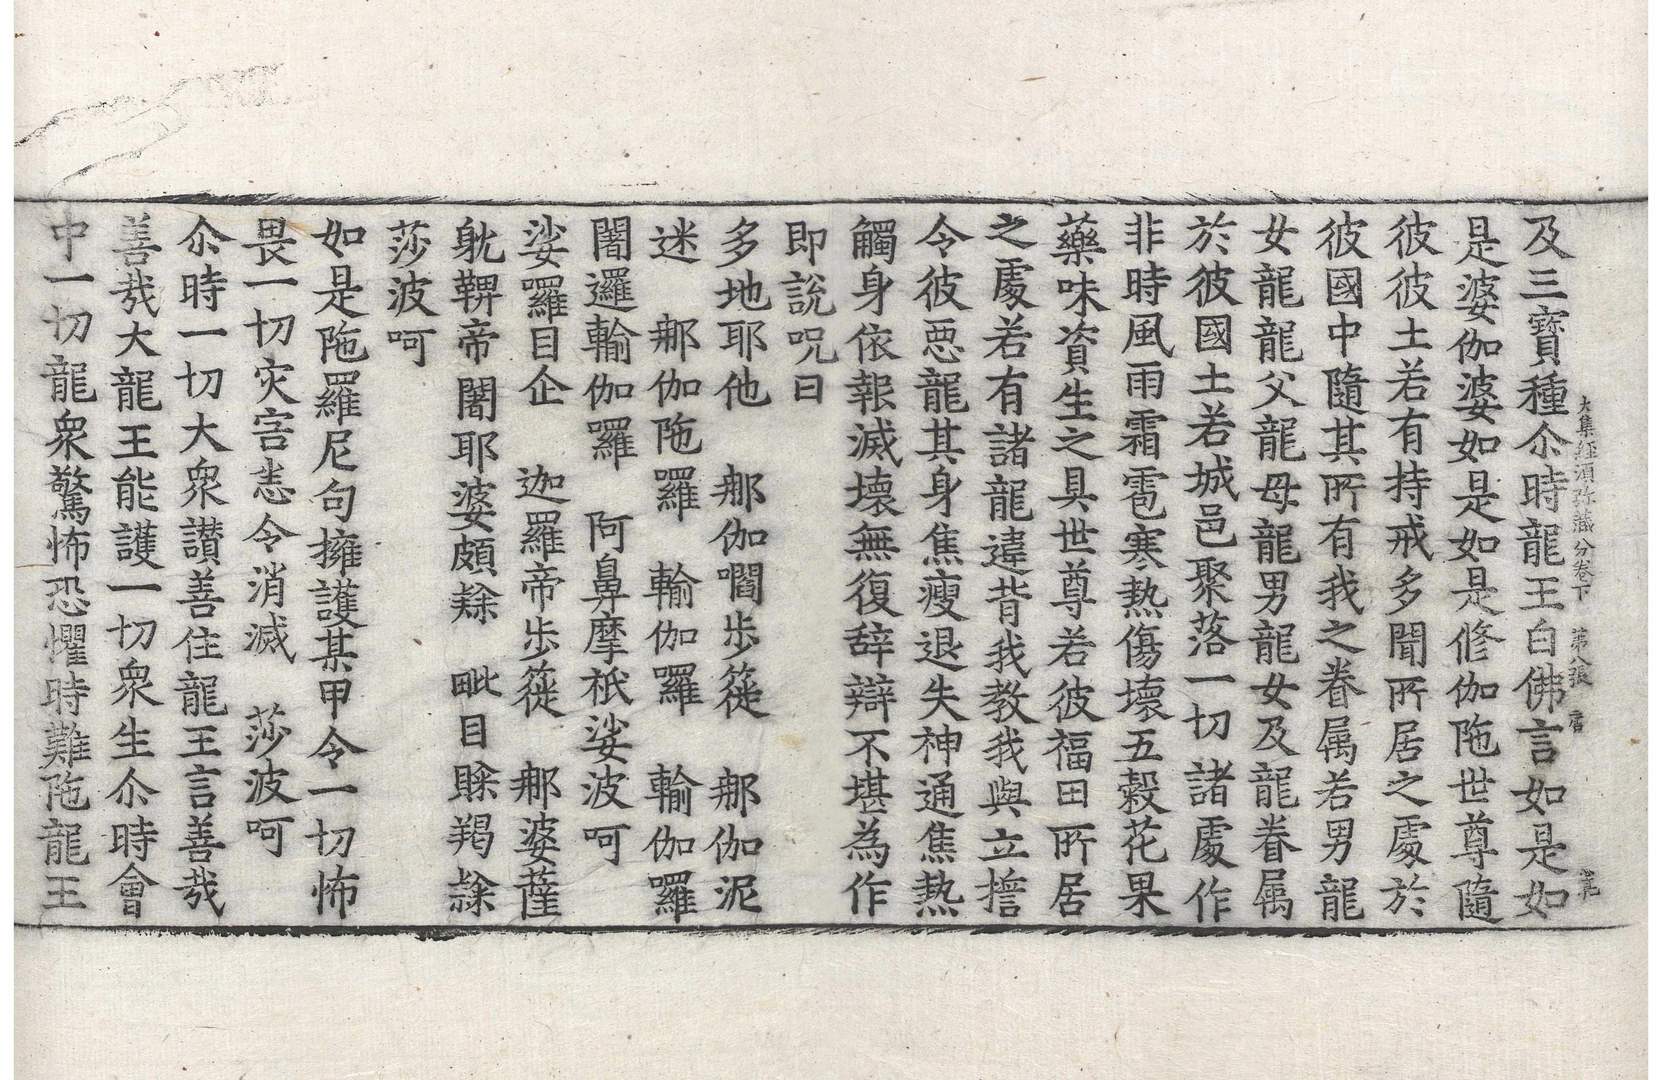 大集經須弥藏分卷下　第八張　唐
及三寶種尒時龍王白佛言如是如
是婆伽婆如是如是修伽陁世尊隨
彼彼土若有持戒多聞所居之處於
彼國中隨其所有我之眷属若男龍
女龍龍父龍母龍男龍女及龍眷属
於彼國土若城邑聚落一切諸處作
非時風雨霜雹寒熱傷壞五穀花果
藥味資生之具世尊若彼福田所居
之處若有諸龍違背我教我與立誓
令彼惡龍其身焦瘦退失神通焦熱
觸身依報滅壞無復辞辯不堪為作
即說呪曰
多地耶他　那伽嚪步簁　那伽泥
迷　那伽陁羅　輸伽羅　輸伽羅
闍邏輸伽囉　阿鼻摩袛娑波呵
娑囉目企　迦羅帝步簁　那婆薩
躭鞞帝闍耶婆頗䅘　毗目賒羯䅘
莎波呵
如是陁羅尼句擁護某甲令一切怖
畏一切灾害恚令消滅　莎波呵
尒時一切大衆讃善住龍王言善哉
善哉大龍王能護一切衆生尒時會
中一切龍衆驚怖恐懼時難陁龍王